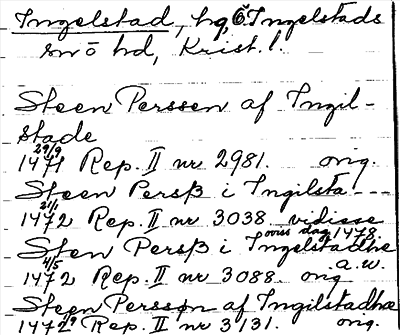 Ingelstad, hg, Ö. Ingelstads
sn ö hd, Krist. l.
Steen Perssen af Ingil-
stade
29/9
1471 Rep. II nr 2981. orig.
Steen Persß i Ingilsta ---
21/1
1472 Rep. II nr 3038. vidisse
oviss dag 1478.
Sten Persß i Ingelstadhe
4/5 a.w.
1472 Rep. II nr 3088. orig
Steen Persson af Ingilstadhæ
1472? Rep. II nr 3131. orig.